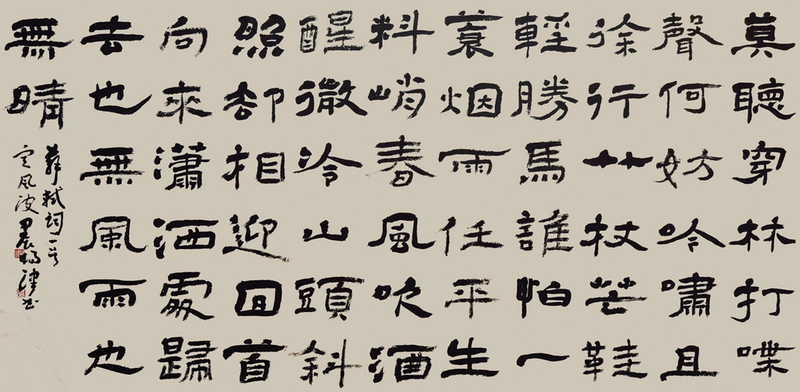 莫聽穿林打喋
聲何妨吟嘯且
徐行竹杖芒鞋
輕勝馬誰怕一
蓑烟雨任平生
料峭春風吹酒
醒微冷山頭斜
照却相迎回首
向來瀟洒處歸
去也無風雨也
無晴
蘇軾詞一首
定風波